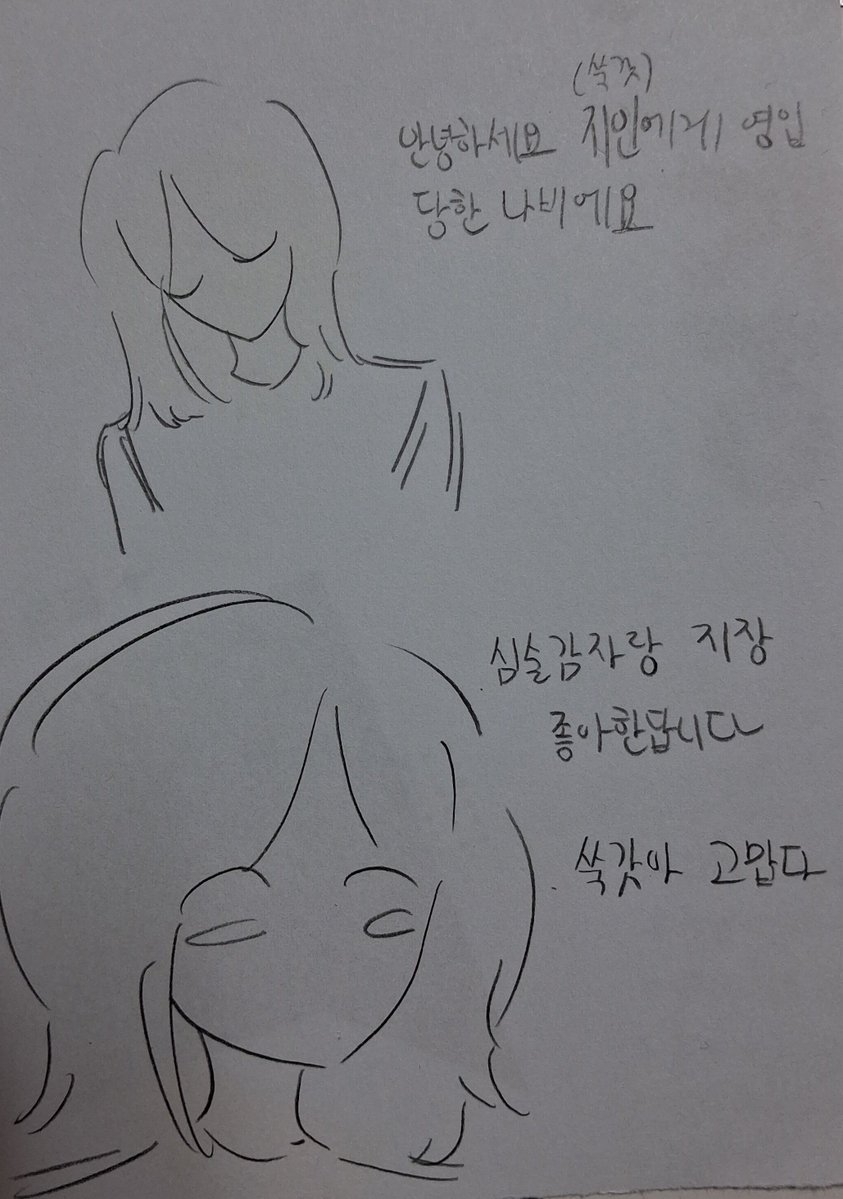 (쑥갓)
안녕하세요 지인에게 영입
당한 나비에요
심술감자랑 지장
좋아한답니다
쑥갓아 고맙다